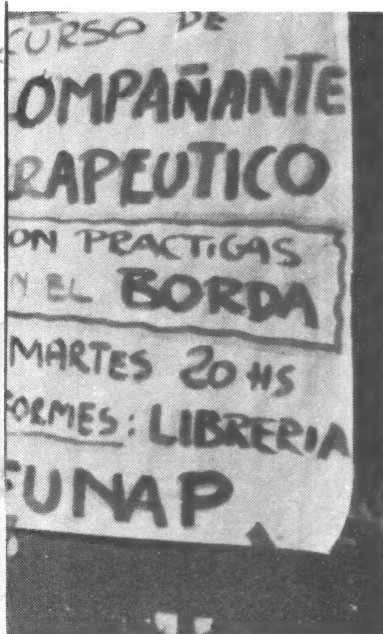 CURSO DE
OMPAÑANTE
RAPEUTICO
ON PRACTICAS
N EL BORDA
MARTES 20 HS
FORMES: LIBRERIA
FUNAP